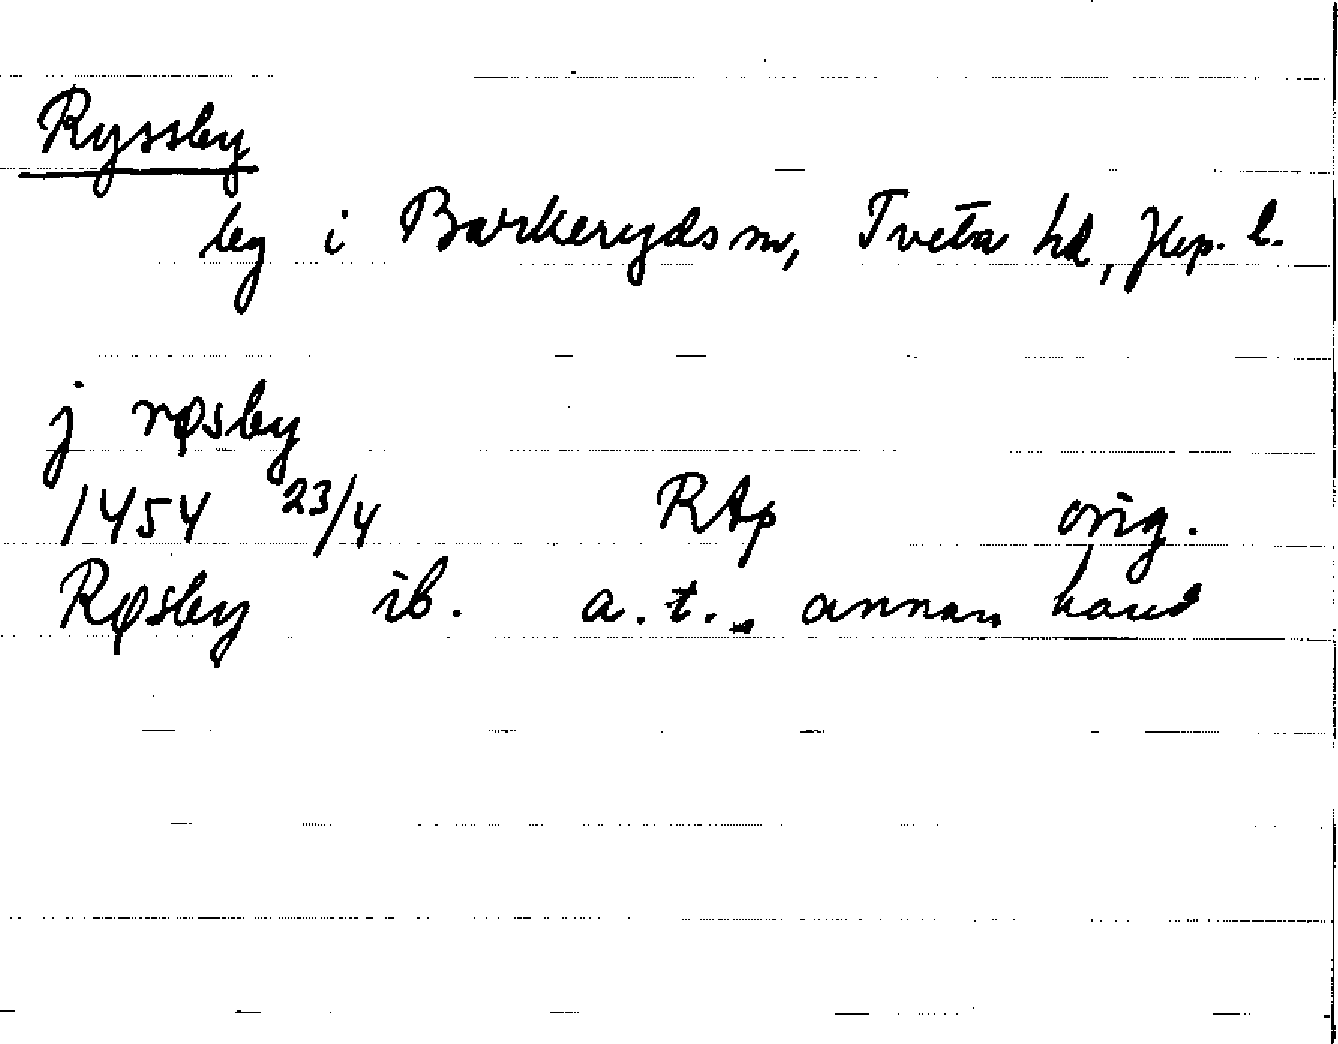 Ryssby
by i Barkeryds sn, Tveta hd, Jkp. l.
j røsby
1454 23/4 RAp orig.
Røsby ib. a.t., annan hand